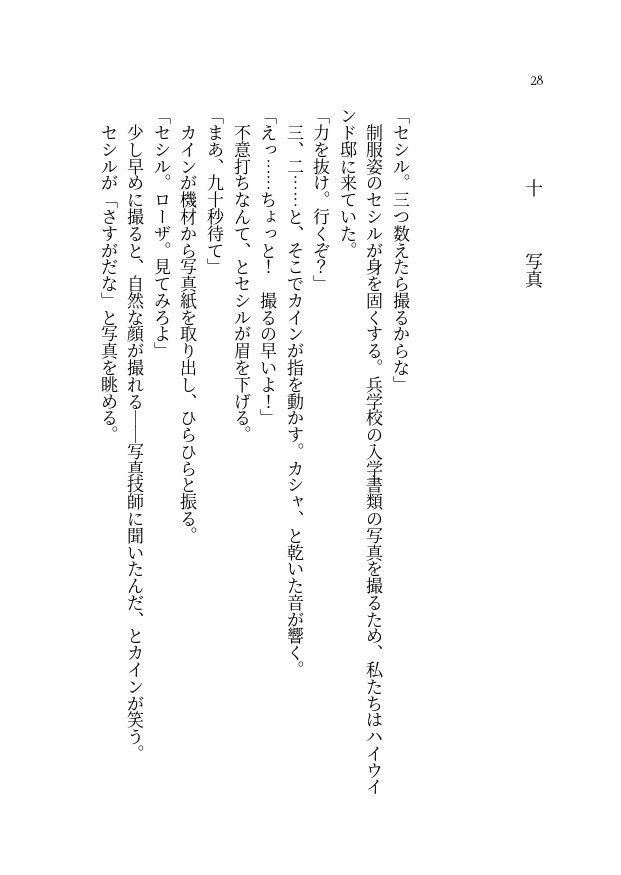 28
十　写真
「セシル。三つ数えたら撮るからな」
　制服姿のセシルが身を固くする。兵学校の入学書類の写真を撮るため、私たちはハイウイ
ンド邸に来ていた。
「力を抜け。行くぞ？」
　三、二……と、そこでカインが指を動かす。カシャ、と乾いた音が響く。
「えっ……ちょっと！　撮るの早いよ！」
　不意打ちなんて、とセシルが眉を下げる。
「まあ、九十秒待て」
　カインが機材から写真紙を取り出し、ひらひらと振る。
「セシル。ローザ。見てみろよ」
　少し早めに撮ると、自然な顔が撮れる――写真技師に聞いたんだ、とカインが笑う。
　セシルが「さすがだな」と写真を眺める。